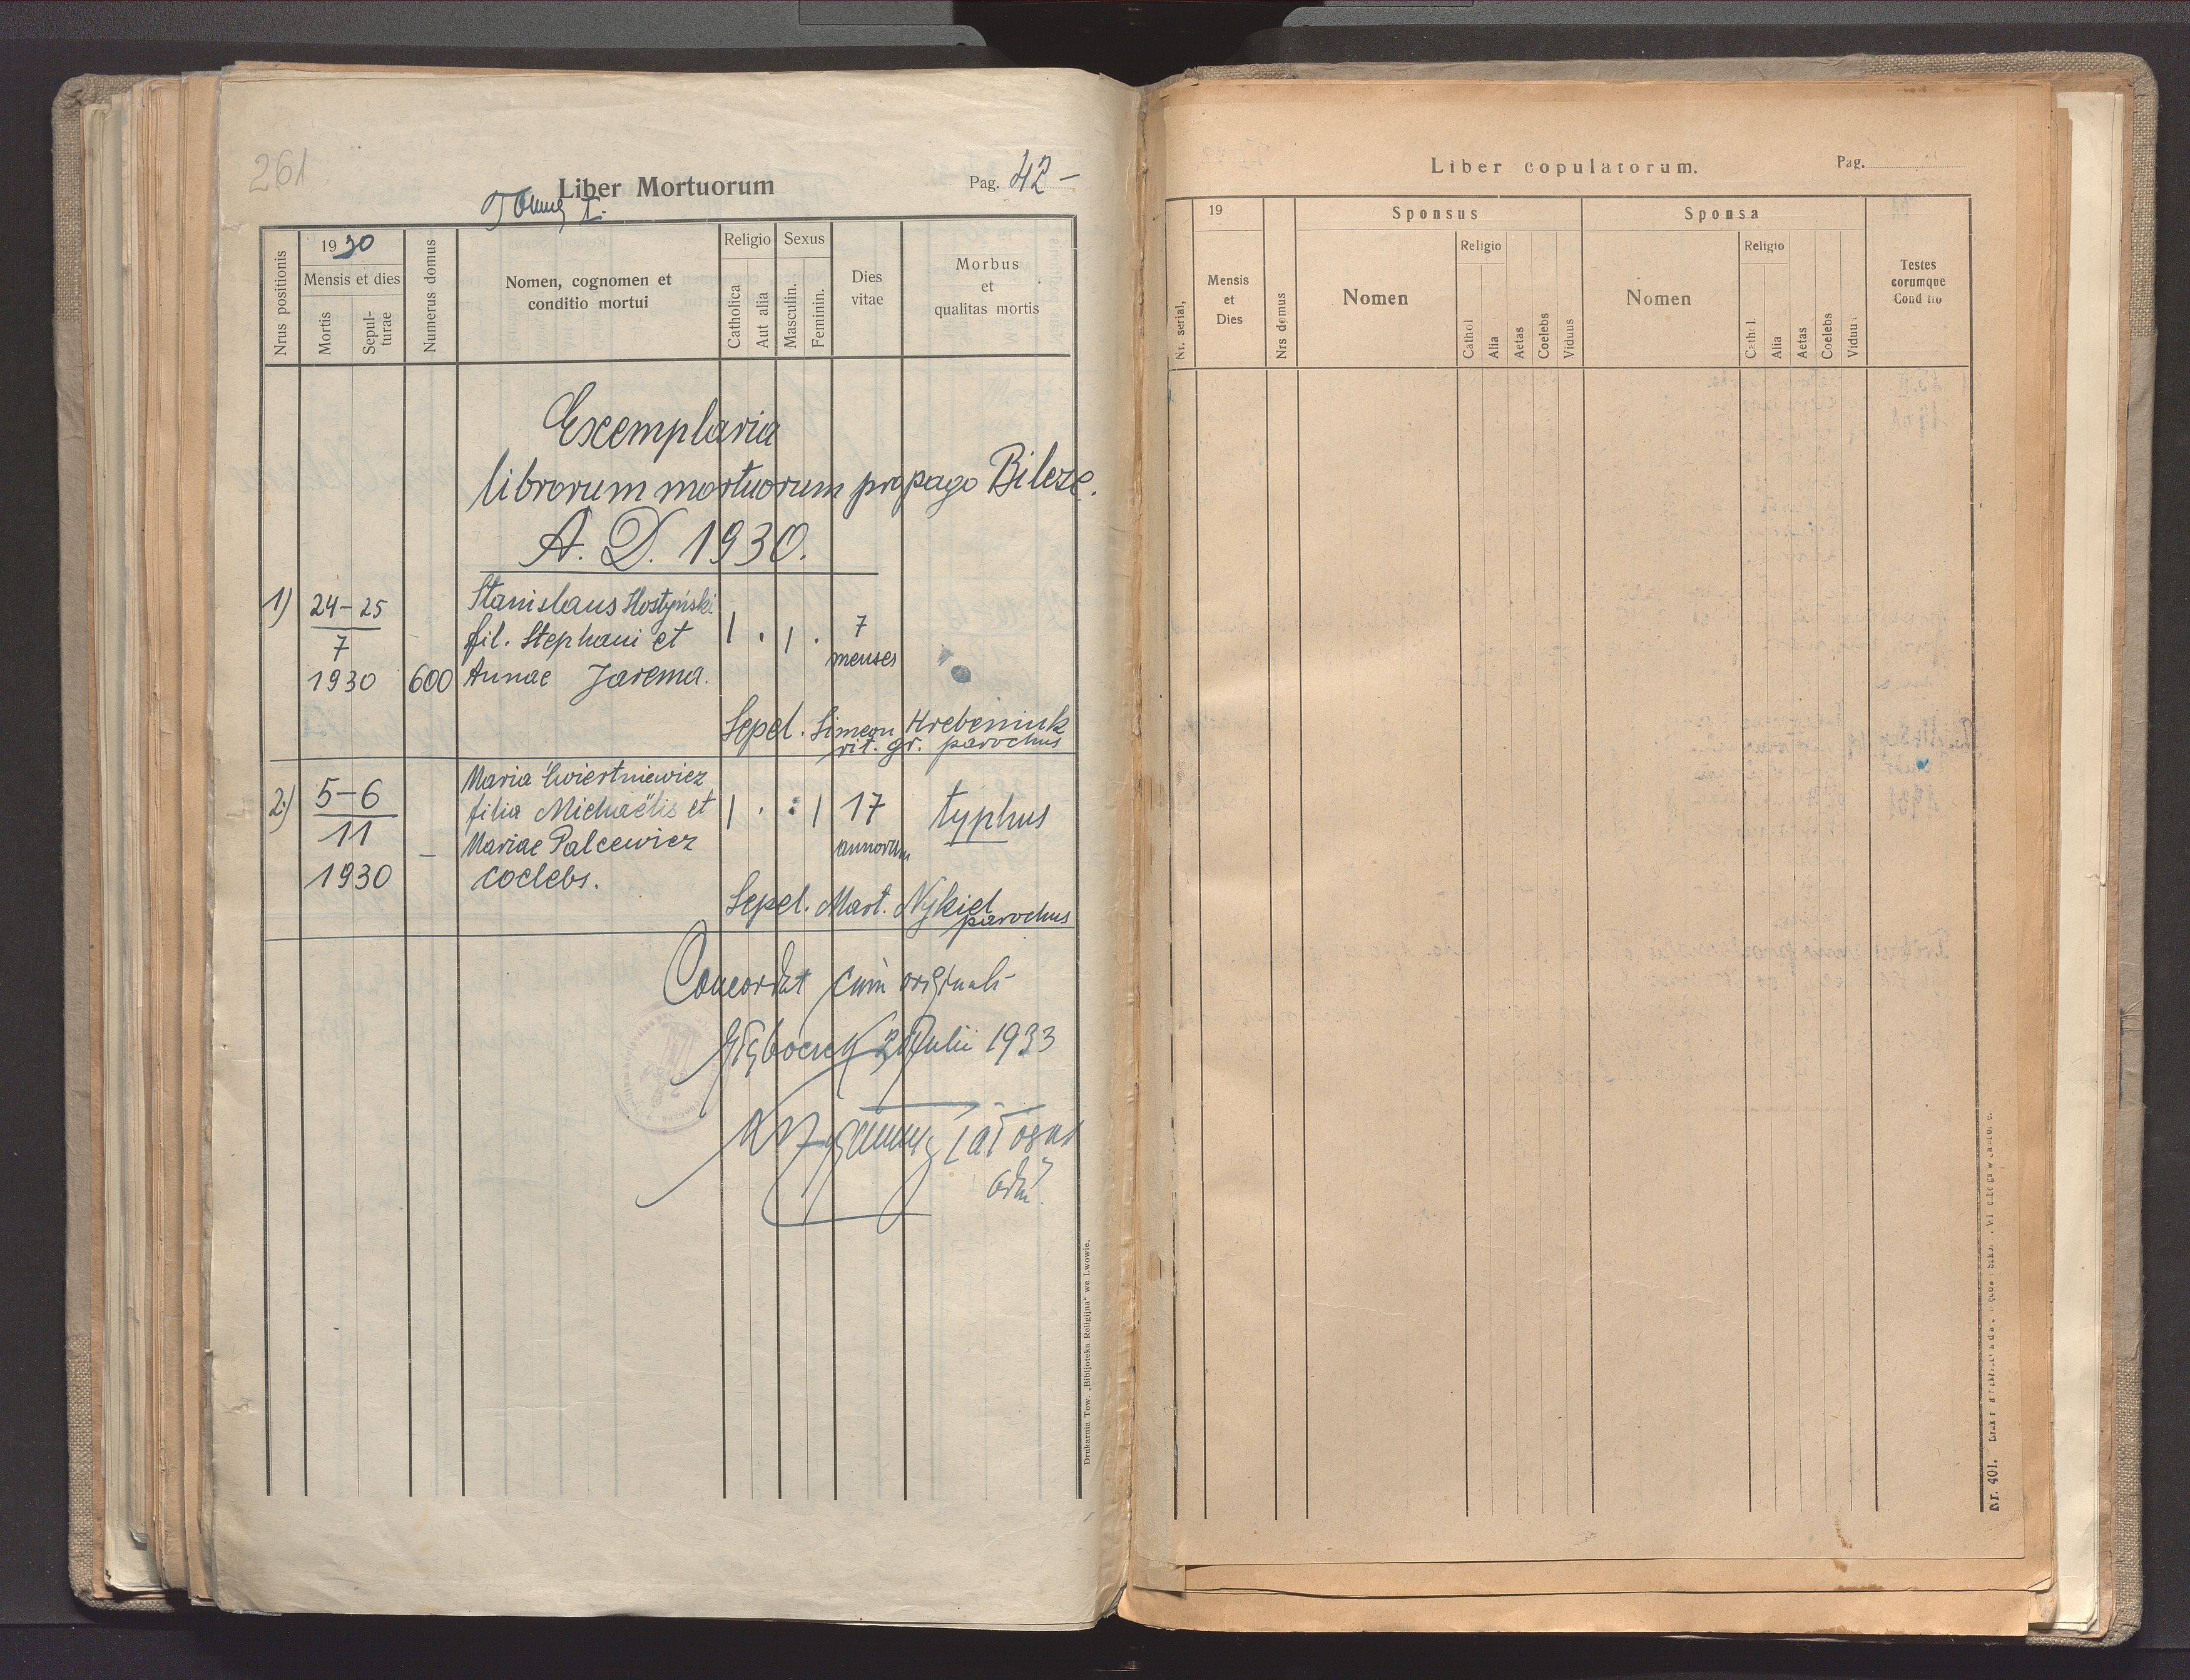 261
Liber Mortuorum
Pag. 42 –
Tomus I.
Nrus positionis
1930
Mensis et dies
Mortis
Sepul-
turae
Numerus domus
Nomen, cognomen et
conditio mortui
Religio
Catholica
Aut alia
Sexus
Masculin.
Feminin.
Dies
vitae
Morbus
et
qualitas mortis
Exemplaria
librorum mortuorum pro pago Bilcze.
A. D. 1930.
1) 24–25
7
1930
600
Stanislaus Hostyński
fil. Stephani et
Annae Jarema.
1 . 1 .
7
menses
Sepel. Simeon Hrebeniuk
rit. gr. parochus
2) 5–6
11
1930
–
Maria Ćwiertniewicz
filia Michaëlis et
Mariae Palcewicz
coelebs.
1 . : 1
17
annorum
typhus
Sepel. Mart. Nykiel
parochus
Concordat cum originali
Głęboczek Julii 1933
Drukarnia Tow. „Bibljoteka Religijna" we Lwowie.
Liber copulatorum.
Pag.
Nr. serial,
19
Mensis
et
Dies
Nrs domus
Sponsus
Nomen
Religio
Cathol
Alia
Aetas
Coelebs
Viduus
Sponsa
Nomen
Religio
Cathol.
Alia
Aetas
Coelebs
Testes
eorumque
Nr. 401.